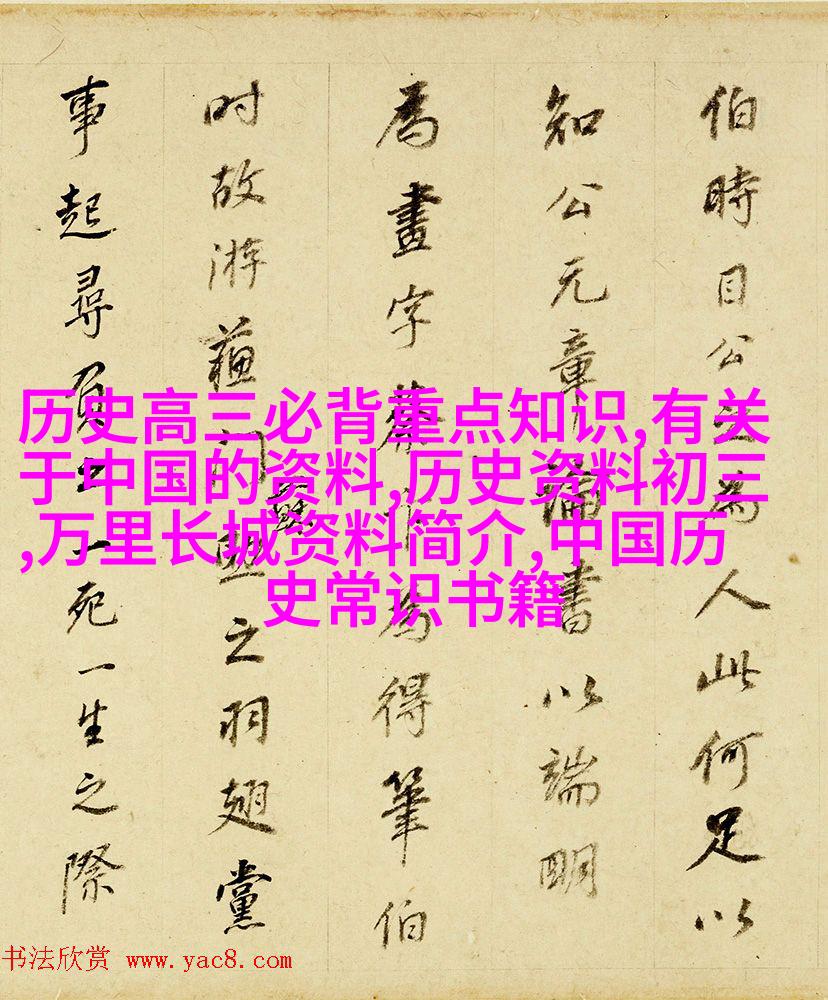 历史高三必背重点知识,有关
于中国的资料,历史资料初三
,万里长城资料简介,中国历
史常识书籍
伯時目公之為人此何足以
知公元章書以端明
為畫字蔡為得筆伯
时故游蘓門之羽翅黨
事起尋負之一死一生之際
书法欣赏 www.yac8.com